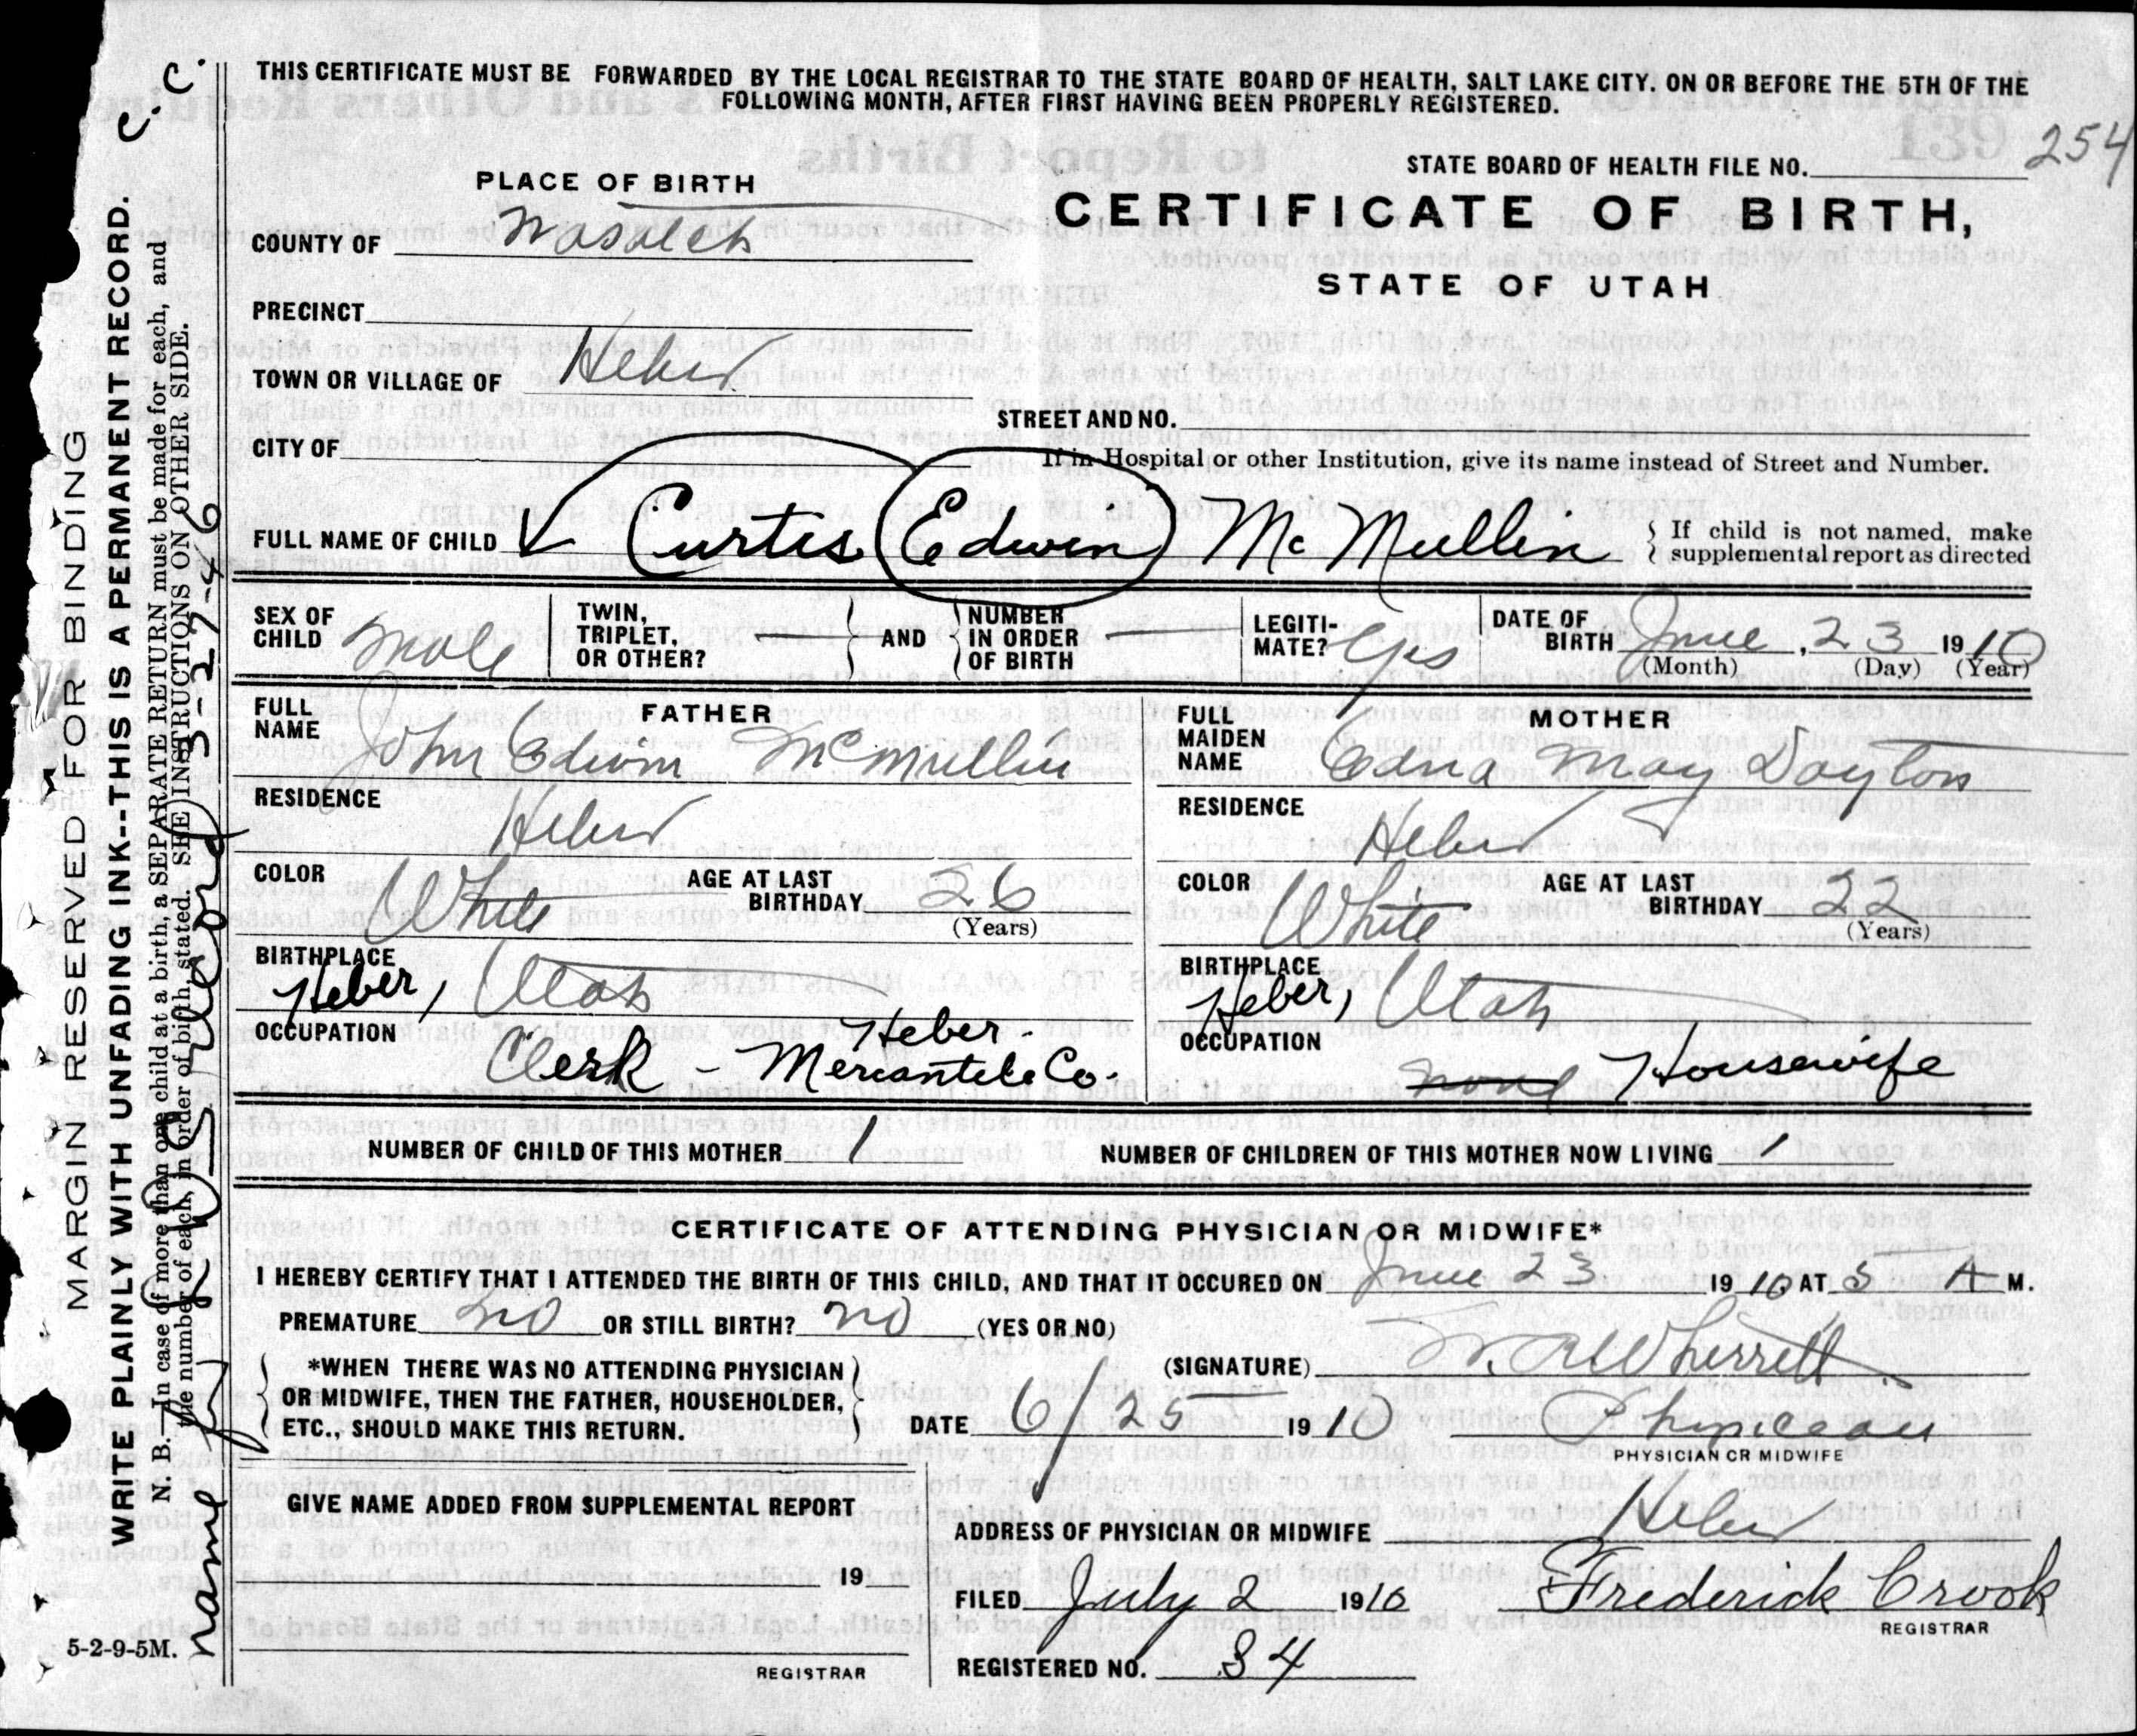 THIS CERTIFICATE MUST BE FORWARDED BY THE LOCAL REGISTRAR TO THE STATE BOARD OF HEALTH, SALT LAKE CITY. ON OR BEFORE THE 5TH OF THE
FOLLOWING MONTH, AFTER FIRST HAVING BEEN PROPERLY REGISTERED.
254
STATE BOARD OF HEALTH FILE NO.
PLACE OF BIRTH
CERTIFICATE OF BIRTH,
STATE OF UTAH
COUNTY OF Wasatch
PRECINCT
TOWN OR VILLAGE OF Heber
STREET AND NO.
CITY OF
If in Hospital or other Institution, give its name instead of Street and Number.
FULL NAME OF CHILD Curtis Edwin McMullin
If child is not named, make
supplemental report as directed
SEX OF CHILD Male
TWIN, TRIPLET, OR OTHER? —
AND
NUMBER IN ORDER OF BIRTH —
LEGITI-MATE? Yes
DATE OF BIRTH June, 23 1910
(Month) (Day) (Year)
FATHER
FULL NAME John Edwin McMullin
RESIDENCE Heber
COLOR White AGE AT LAST BIRTHDAY 26
(Years)
BIRTHPLACE
Heber, Utah
OCCUPATION
Clerk - Heber Mercantile Co.
MOTHER
FULL MAIDEN NAME Edna May Dayton
RESIDENCE Heber
COLOR White AGE AT LAST BIRTHDAY 22
(Years)
BIRTHPLACE
Heber, Utah
OCCUPATION
none Housewife
NUMBER OF CHILD OF THIS MOTHER 1 NUMBER OF CHILDREN OF THIS MOTHER NOW LIVING 1
CERTIFICATE OF ATTENDING PHYSICIAN OR MIDWIFE*
I HEREBY CERTIFY THAT I ATTENDED THE BIRTH OF THIS CHILD, AND THAT IT OCCURED ON June 23 1910 AT 5 A M.
PREMATURE no OR STILL BIRTH? no (YES OR NO)
*WHEN THERE WAS NO ATTENDING PHYSICIAN
OR MIDWIFE, THEN THE FATHER, HOUSEHOLDER,
ETC., SHOULD MAKE THIS RETURN.
(SIGNATURE) Wherritt
DATE 6/25 1910 Physician
PHYSICIAN OR MIDWIFE
GIVE NAME ADDED FROM SUPPLEMENTAL REPORT
19
REGISTRAR
ADDRESS OF PHYSICIAN OR MIDWIFE Heber
FILED July 2 1910 Frederick Crook
REGISTRAR
REGISTERED NO. 34
5-2-9-5M.
MARGIN RESERVED FOR BINDING
WRITE PLAINLY WITH UNFADING INK--THIS IS A PERMANENT RECORD. C.C.
N. B.—In case of more than one child at a birth, a SEPARATE RETURN must be made for each, and
the number of each, in order of birth, stated. SEE INSTRUCTIONS ON OTHER SIDE.
name record 3-27-46